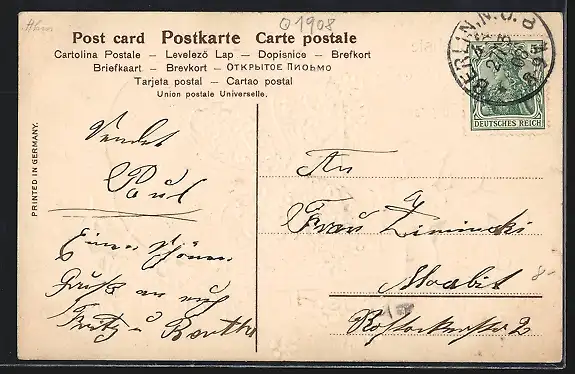 Q 1908
Post card Postkarte Carte postale
Cartolina Postale – Levelező Lap – Dopisnice – Brefkort
Briefkaart – Brevkort – Открытое Письмо
Tarjeta postal – Cartao postal
Union postale Universelle.
BERLIN.N.
DEUTSCHES REICH
PRINTED IN GERMANY.
Sendet
Paul
Einen schönen
Gruß an euch
Fritz u Berthe
An
Frau Ziminski
Moabit
Rostockerstr 2
8-